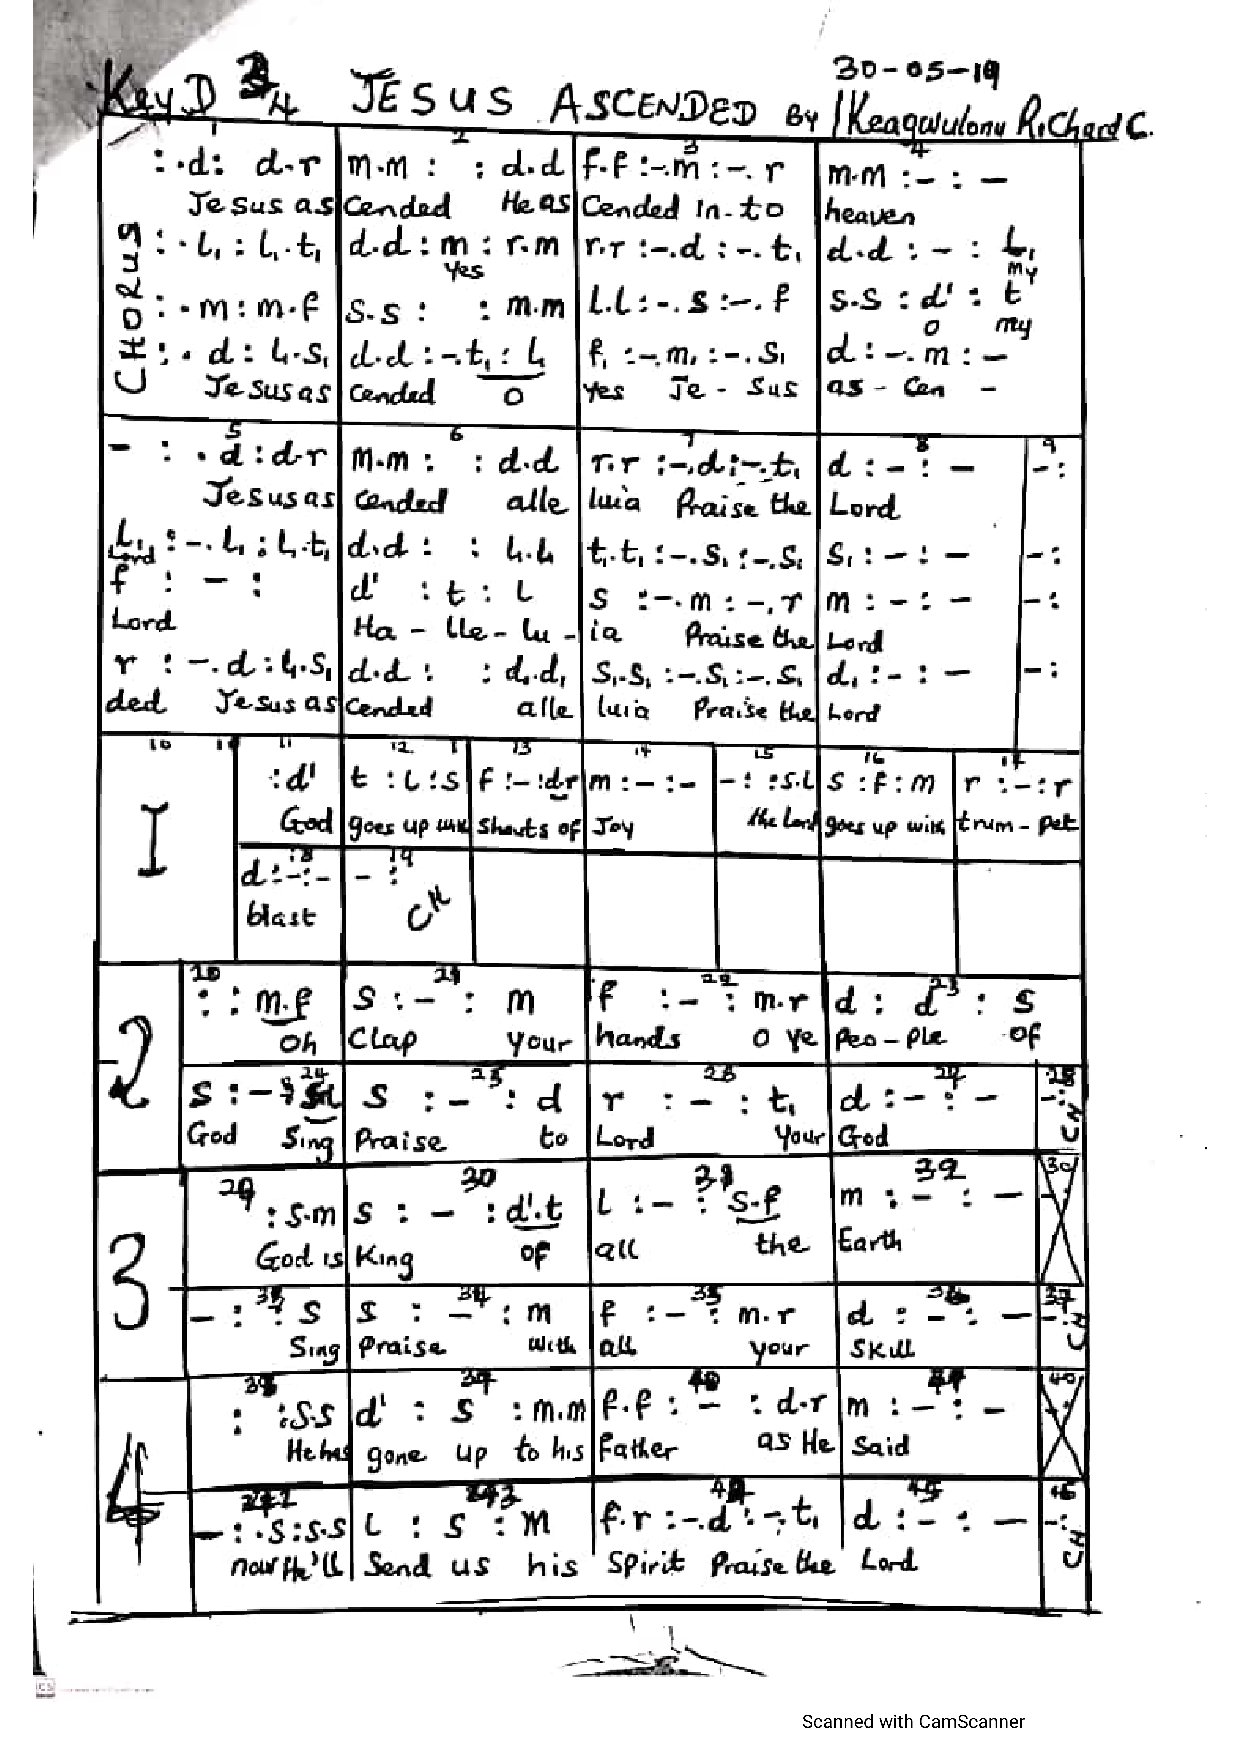 30-05-19
Key D 3/4 JESUS ASCENDED By Ikeagwulonu Richard C.
1 2 3 4
CHORUS
:.d: d.r | m.m : : d.d | f.f :-.m :-. r | m.m :- : -
Jesus as | Cended He as | Cended In-to | heaven
:.L₁ : L₁.t₁ | d.d : m : r.m | r.r :-.d :-. t₁ | d.d : - : L₁
Yes my
:.m : m.f | s.s : : m.m | L.L :-. s :-. f | s.s : d' : t
o my
:. d : L₁.s₁ | d.d :-.t₁ : L₁ | f₁ :-.m₁ :-. s₁ | d :-. m : -
Jesus as | Cended O | Yes Je - sus | as - Cen -
5 6 7 8 9
- : . d : d.r | m.m : : d.d | r.r :-.d :-.t₁ | d : - : - | - :
Jesus as | cended alle | luia Praise the | Lord
L₁ :-. L₁ : L₁.t₁ | d.d : : L₁.L₁ | t₁.t₁ :-.s₁ :-.s₁ | s₁ : - : - | - :
Lord
f : - : | d' : t : L | s :-.m :-.r | m : - : - | - :
Lord | Ha - lle - lu - | ia Praise the | Lord
r : -.d : L₁.s₁ | d.d : : d₁.d₁ | s₁.s₁ :-.s₁ :-.s₁ | d₁ : - : - | - :
ded Jesus as | Cended alle | luia Praise the | Lord
10 11 12 13 14 15 16 17
I
:d' | t : L : s | f :- :d.r | m :- :- | - : :s.L | s : f : m | r :- : r
God | goes up with | Shouts of | Joy | the Lord | goes up with | trum - pet
18 19
d :- :- | - :
blast CH
20 21 22 23
2
: : m.f | s : - : m | f : - : m.r | d : d' : s
Oh | Clap your | hands o ye | Peo - ple of
24 25 26 27 28
s : - : | s : - : d | r : - : t₁ | d : - : - | - :
God Sing | Praise to | Lord your | God CH
29 30 31 32 30
3
: s.m | s : - : d'.t | L : - : s.f | m : - : -
God is | King of | all the | Earth
33 34 35 36 37
- : : s | s : - : m | f : - : m.r | d : - : - | - :
Sing | Praise with | all your | Skill CH
38 39 40 41 40
4
: :s.s | d' : s : m.m | f.f : - : d.r | m : - : -
He has | gone up to his | Father as He | Said
42 43 44 45 46
- : .s : s.s | L : s : m | f.r :-.d :-. t₁ | d : - : - | - :
now He'll | Send us his | Spirit Praise the | Lord CH
CS
Scanned with CamScanner